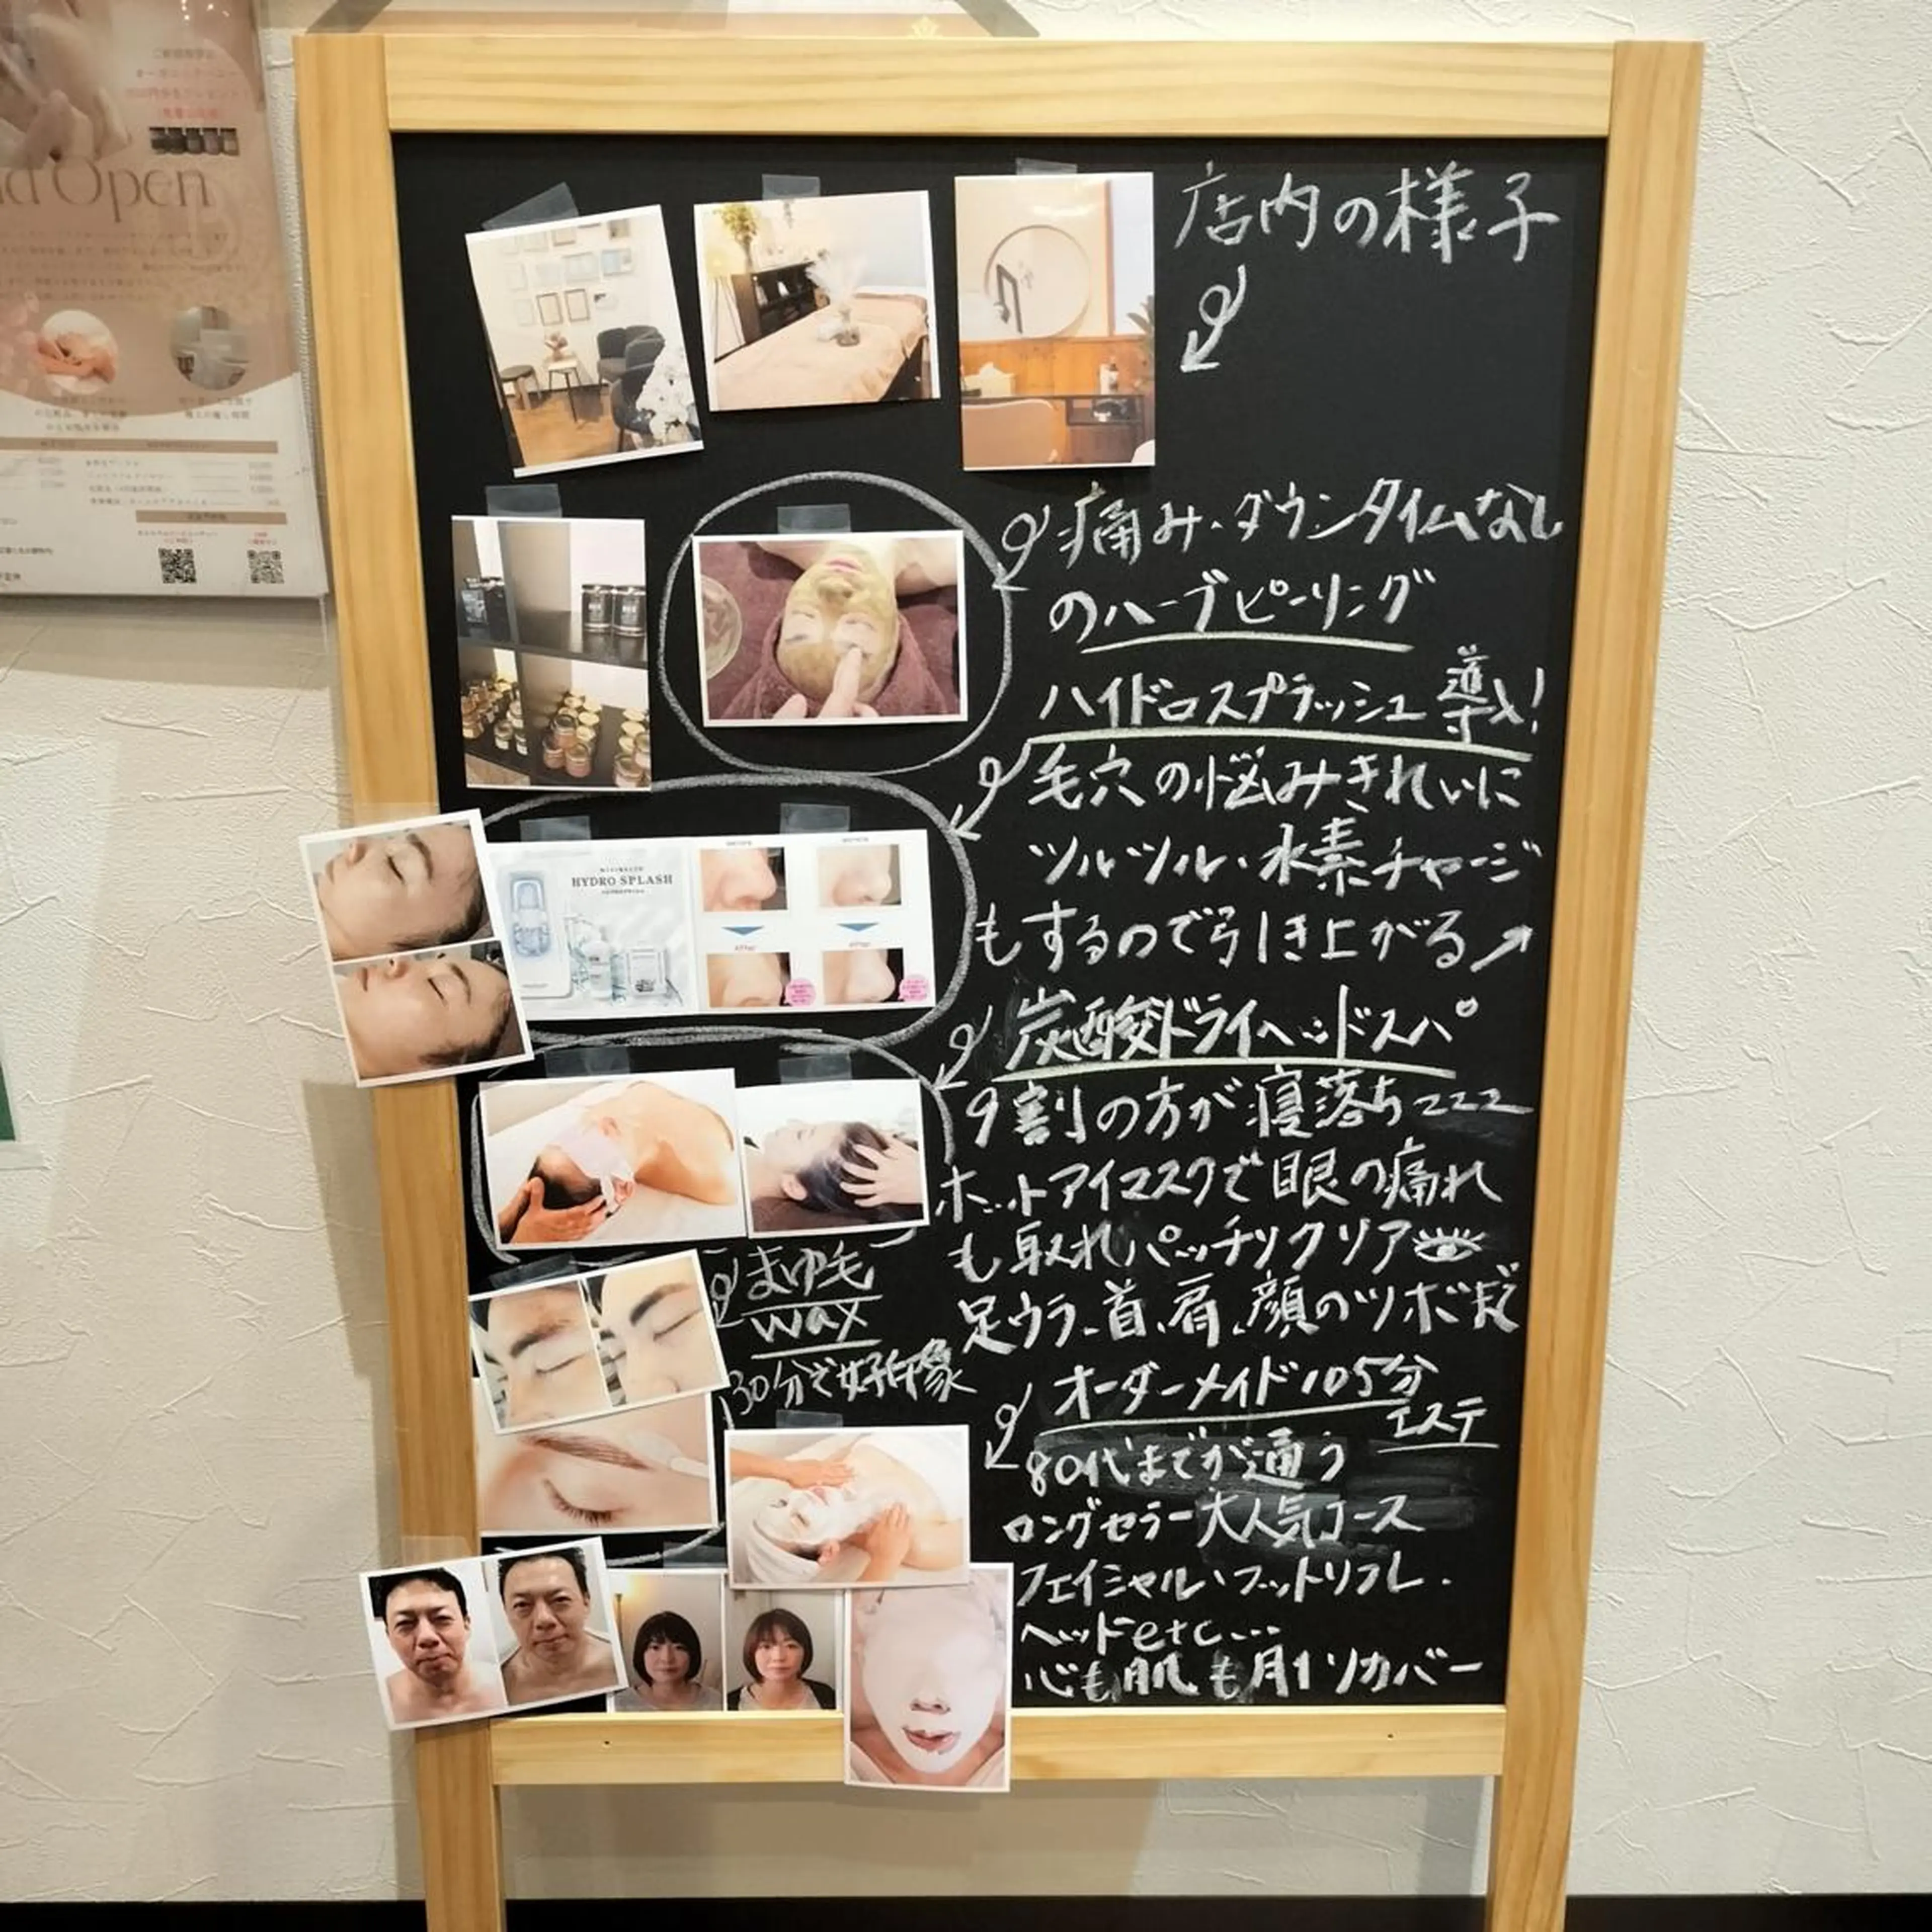 nd Open
店内の様子
痛み・ダウンタイムなし
のハーブピーリング
ハイドロスプラッシュ 導入!
毛穴の悩みきれいに
ツルツル・水素チャージ
もするので引き上がる↗
HYDRO SPLASH
炭酸ドライヘッドスパ
9割の方が寝落ちzzz
ホットアイマスクで眼の痛れ
も取れパッチリクリア
足ウラ、首、肩、顔のツボまで
まゆ毛
wax
30分で好印象
オーダーメイド105分
エステ
80代までが通う
ロングセラー大人気コース
フェイシャル・フットリフレ・
ヘッドetc...
心も肌も月1リカバー